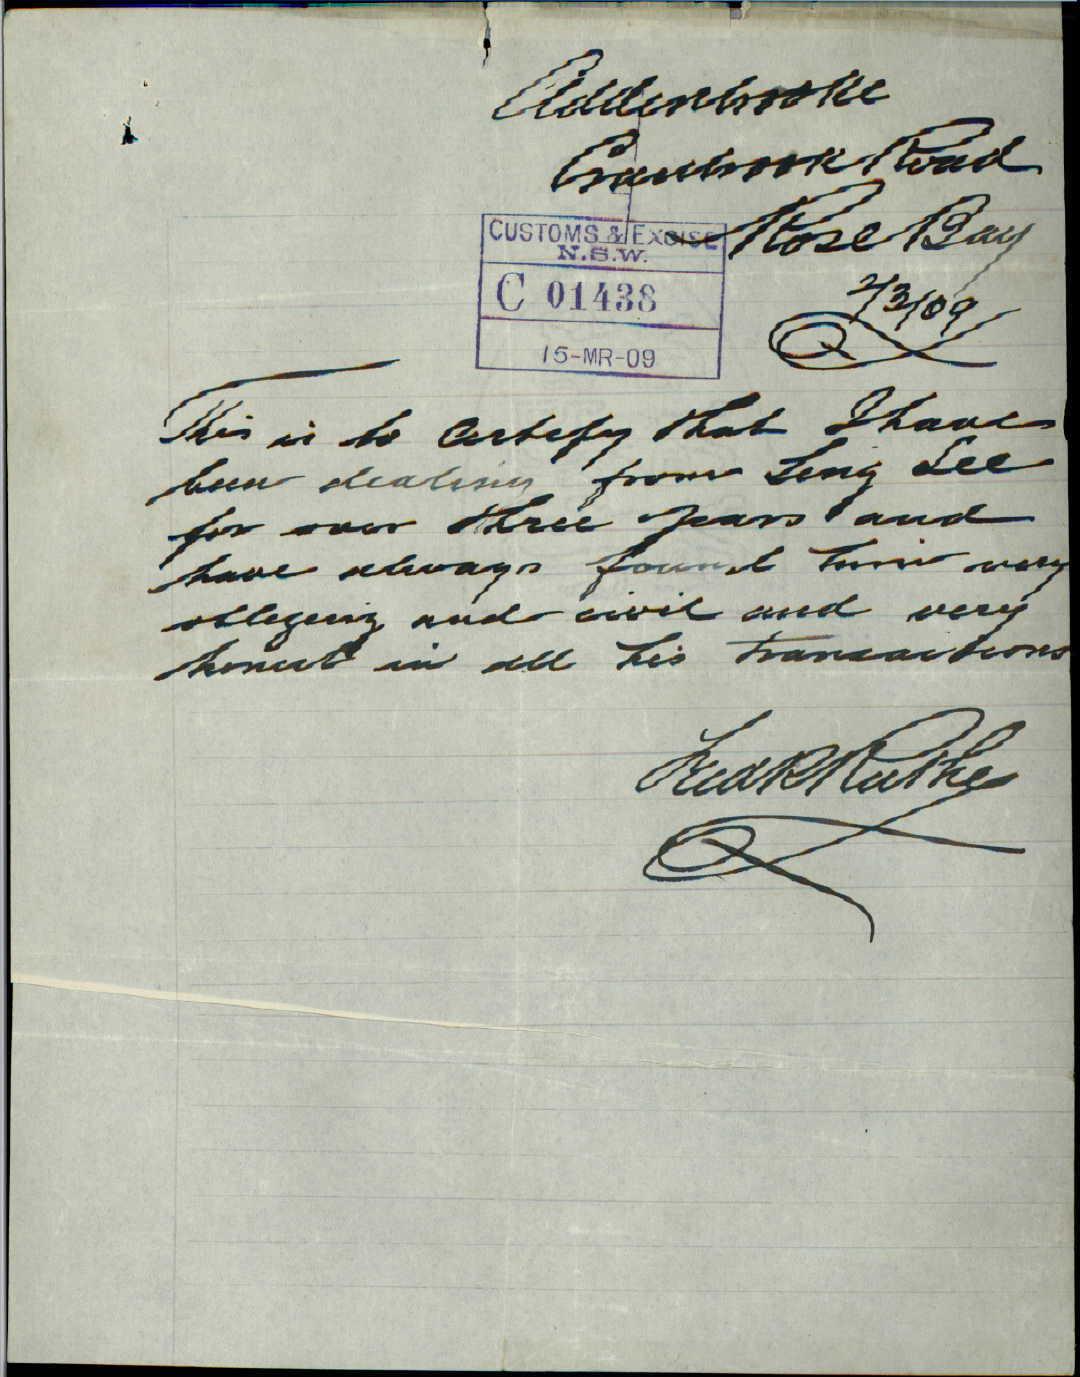 Addenbrooke
Cranbrook Road
Rose Bay
2/3/09
CUSTOMS & EXCISE
N.S.W.
C 01438
15-MR-09
This is to certify that I have
been dealing from Leng Lee
for over three years and
have always found him very
obligeing and civil and very
honest in all his transactions